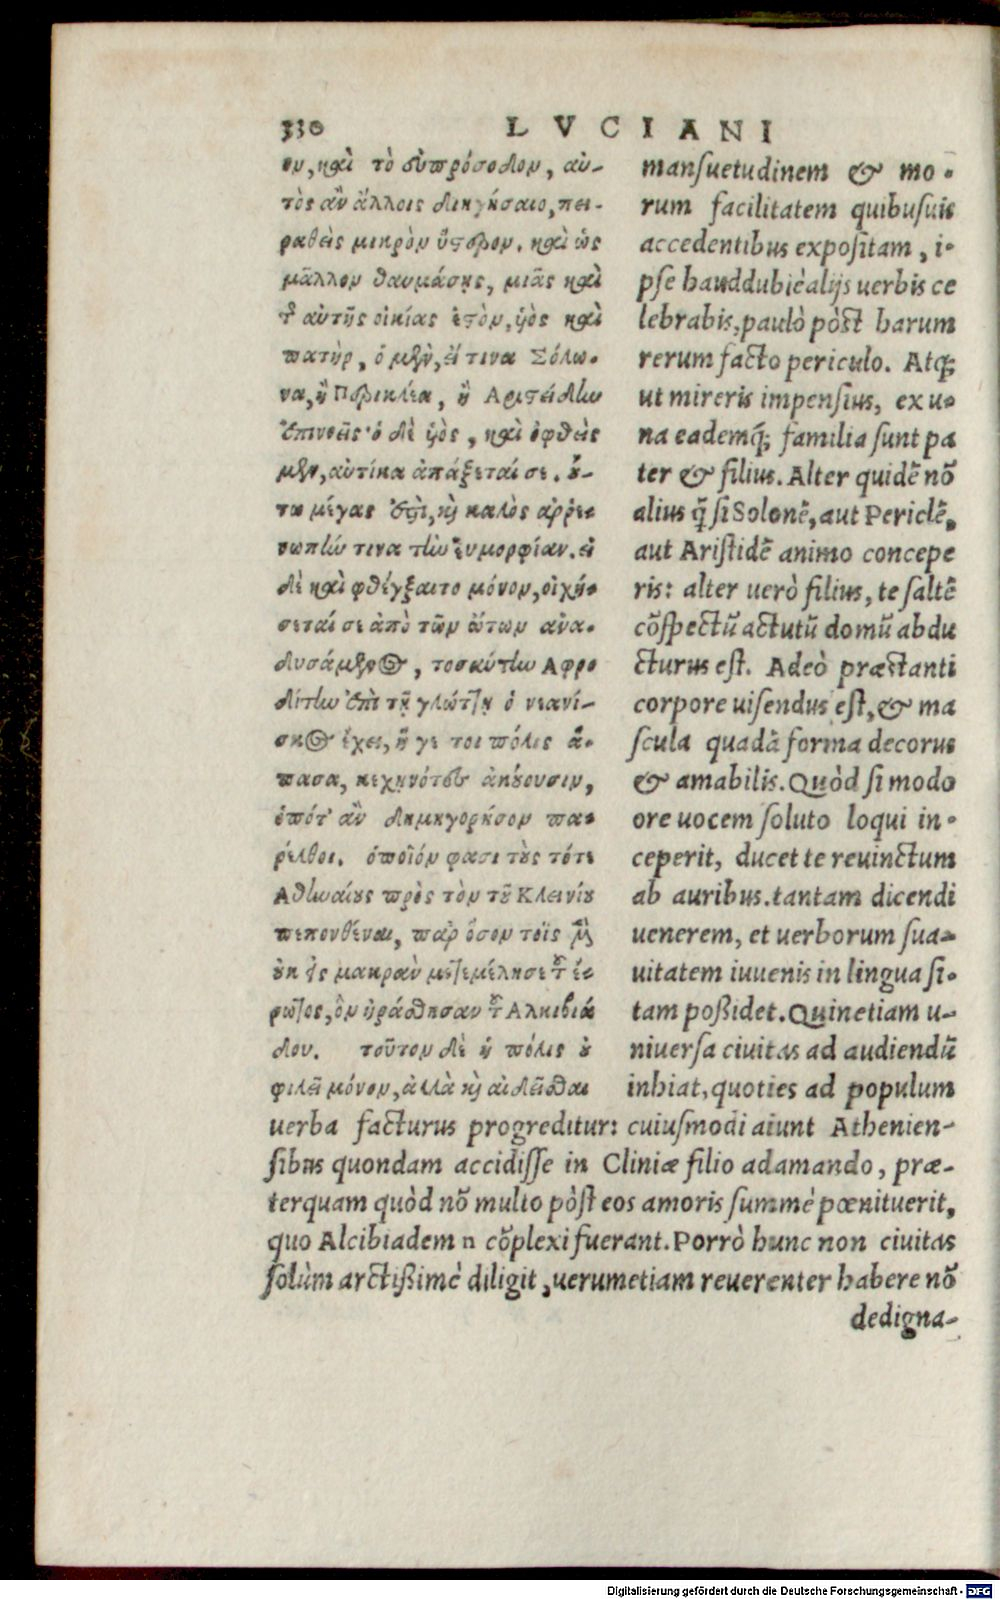 330 LVCIANI
ον, καὶ τὸ εὐπρόσοδον, αὐ-
τὸς ἂν ἄλλοις διηγήσαιο, πει-
ραθεὶς μικρὸν ὕστερον. καὶ ὡς
μᾶλλον θαυμάσῃς, μιᾶς καὶ
τ αὐτῆς οἰκίας ἐστὸν, ὑὸς καὶ
πατὴρ, ὁ μὲν, εἴ τινα Σόλω-
να, ἢ Περικλέα, ἢ Αριστείδην
ἐπινοεῖς· ὁ δὲ ὑὸς, καὶ ὀφθεὶς
μὲν, αὐτίκα ἀπάξεταί σε. οὕ-
τω μέγας ἐστὶ, καὶ καλὸς ἀῤῥε-
νωπήν τινα τὴν εὐμορφίαν. εἰ
δὲ καὶ φθέγξαιτο μόνον, οἰχή-
σεταί σε ἀπὸ τῶν ὤτων ἀνα-
δυσάμενος, τοσαύτην Αφρο
δίτην ἐπὶ τῇ γλώττῃ ὁ νεανί-
σκος ἔχει, ἥ γε τοι πόλις ἅ-
πασα, κεχηνότες ἀκούουσιν,
ὁπότ' ἂν δημηγορήσον πα-
ρέλθοι. ὁποῖόν φασι τοὺς τότε
Αθηναίους πρὸς τὸν τοῦ Κλεινίου
πεπονθέναι, παρ ὅσον τοῖς μὲν
οὐκ εἰς μακρὰν μετεμέλησε τοῦ ἔ-
ρωτος, ὃν ἠράσθησαν τοῦ Αλκιβιά
δου. τοῦτον δὲ ἡ πόλις οὐ
φιλεῖ μόνον, ἀλλὰ καὶ αἰδεῖσθαι
mansuetudinem & mo-
rum facilitatem quibusuis
accedentibus expositam, i-
pse hauddubiè alijs uerbis ce
lebrabis, paulò pòst harum
rerum facto periculo. Atq;
ut mireris impensius, ex u-
na eademq́; familia sunt pa
ter & filius. Alter quidẽ nõ
alius q̃ si Solonẽ, aut Periclẽ,
aut Aristidẽ animo concepe
ris: alter uerò filius, te saltẽ
cõspectũ actutũ domũ abdu
cturus est. Adeò præstanti
corpore uisendus est, & ma
scula quadã forma decorus
& amabilis. Quòd si modo
ore uocem soluto loqui in-
ceperit, ducet te reuinctum
ab auribus. tantam dicendi
uenerem, et uerborum sua-
uitatem iuuenis in lingua si-
tam poßidet. Quinetiam u-
niuersa ciuitas ad audiendũ
inhiat, quoties ad populum
uerba facturus progreditur: cuiusmodi aiunt Athenien-
sibus quondam accidisse in Cliniæ filio adamando, præ-
terquam quòd nõ multo pòst eos amoris summè pœnituerit,
quo Alcibiadem n cõplexi fuerant. Porrò hunc non ciuitas
solùm arctißimè diligit, uerumetiam reuerenter habere nõ
dedigna-
Digitalisierung gefördert durch die Deutsche Forschungsgemeinschaft - DFG